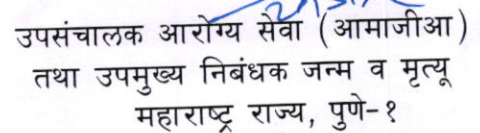 उपसंचालक आरोग्य सेवा (आमाजीआ)
तथा उपमुख्य निबंधक जन्म व मृत्यू
महाराष्ट्र राज्य, पुणे-१